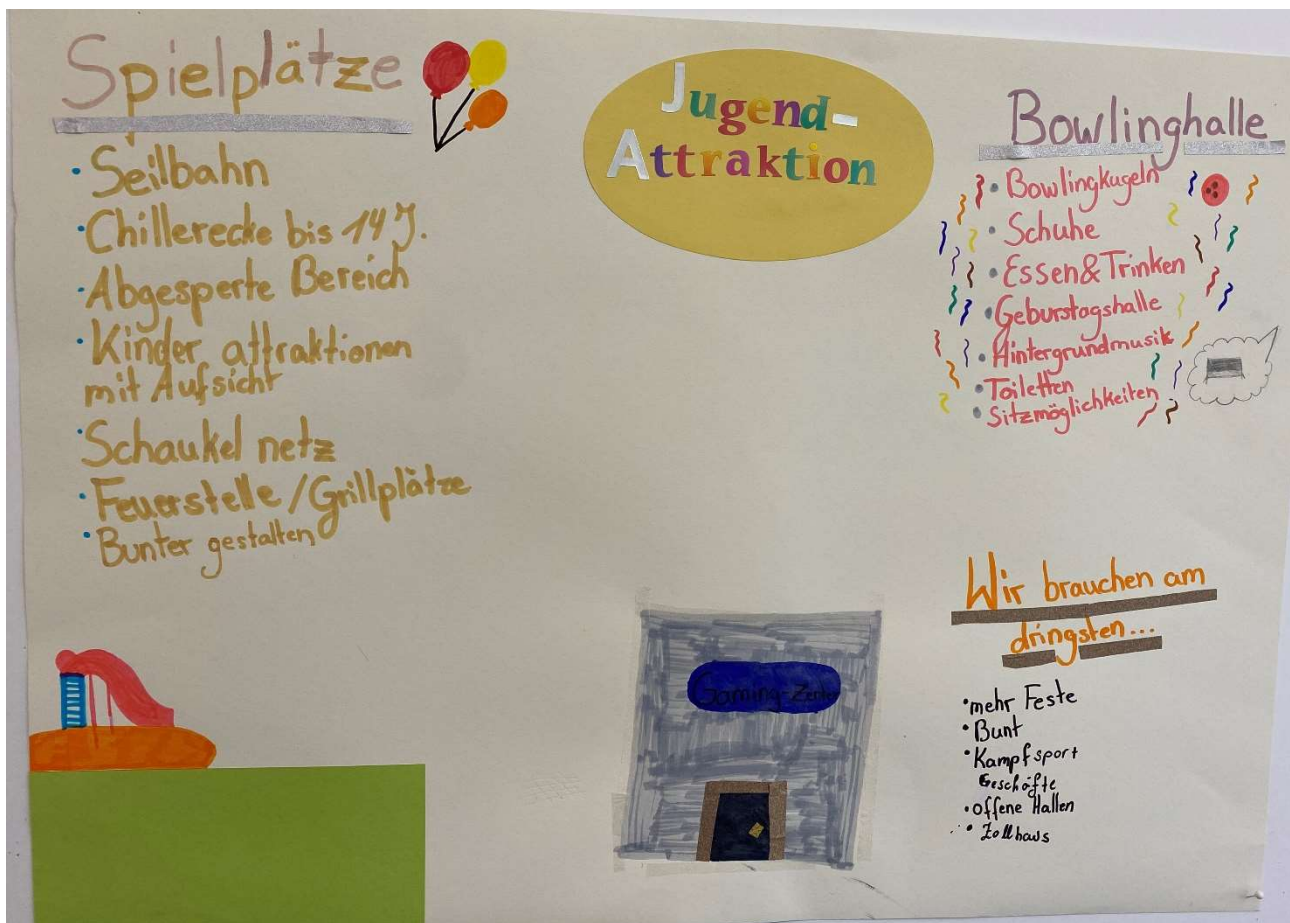 Spielplätze
Seilbahn
Chillerecke bis 14 J.
Abgesperte Bereich
Kinder attraktionen
mit Aufsicht
Schaukel netz
Feuerstelle/Grillplätze
Bunter gestalten
Jugend-
Attraktion
Bowlinghalle
Bowlingkugeln
Schuhe
Essen&Trinken
Geburstagshalle
Hintergrundmusik
Toiletten
Sitzmöglichkeiten
Gaming-Zenter
Wir brauchen am
dringsten...
mehr Feste
Bunt
Kampfsport
Geschäfte
offene Hallen
Zollhaus